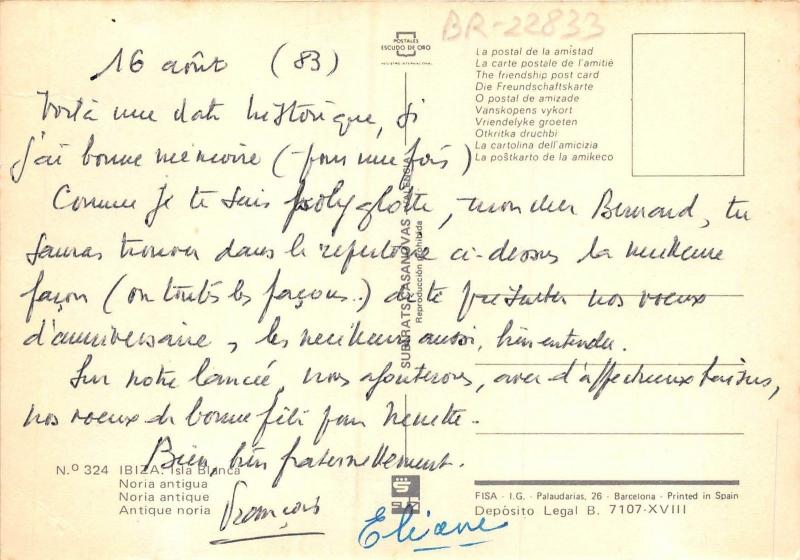 BR-22833
POSTALES
ESCUDO DE ORO
REGISTRO INTERNACIONAL
La postal de la amistad
La carte postale de l'amitié
The friendship post card
Die Freundschaftskarte
O postal de amizade
Vanskopens vykort
Vriendelyke groeten
Otkritka druchbi
La cartolina dell'amicizia
La poŝtkarto de la amikeco
16 août (83)
Voilà une date historique, si
j'ai bonne mémoire (pour une fois)
Comme je te sais polyglotte, mon cher Bernard, tu
sauras trouver dans le répertoire ci-dessus la meilleure
façon (ou toutes les façons..) de te présenter nos voeux
d'anniversaire, les meilleurs aussi, bien entendu.
Sur notre lancée, nous ajouterons, avec d'affectueux baisers,
nos voeux de bonne fête pour Nenette.
Bien, bien fraternellement.
François
Eliane
SUBIRATS CASANOVAS VALENCIA
Reproducción prohibida
N.º 324 IBIZA: Isla Blanca
Noria antigua
Noria antique
Antique noria
FISA - I.G. - Palaudarias, 26 - Barcelona - Printed in Spain
Depòsito Legal B. 7107-XVIII